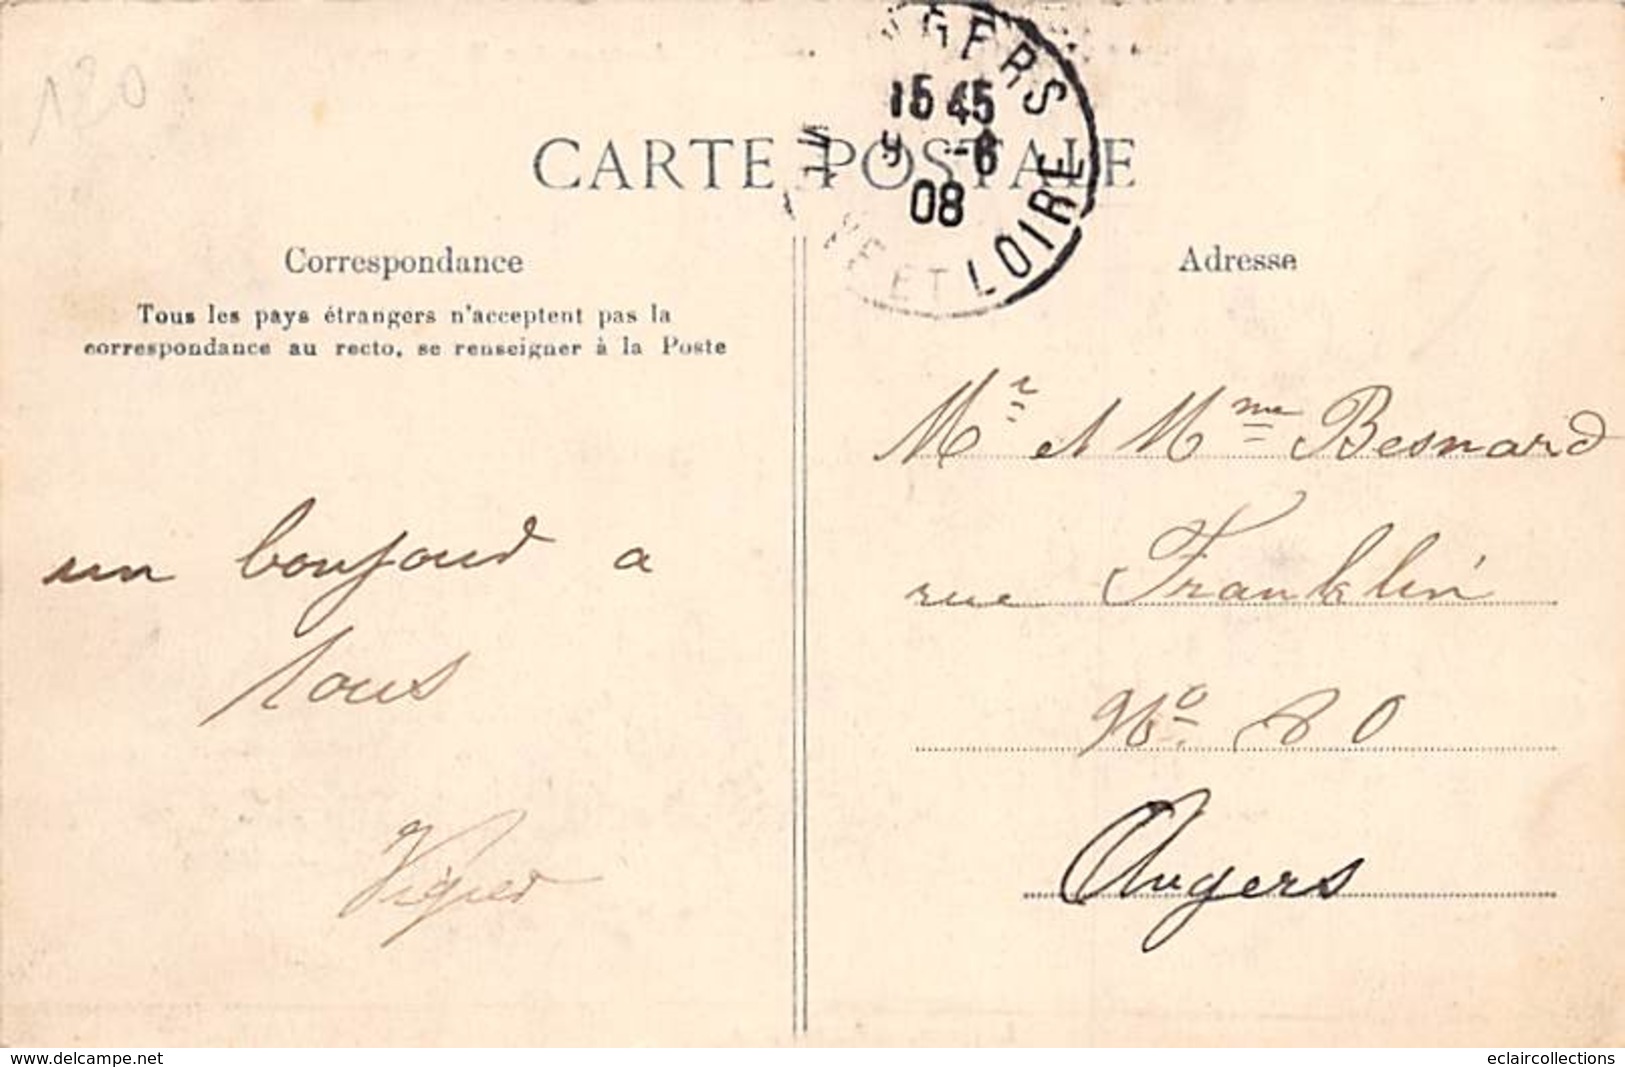 120
GERS
15 45
9 -6
08
ET LOIRE
CARTE POSTALE
Correspondance
Tous les pays étrangers n'acceptent pas la
correspondance au recto, se renseigner à la Poste
un bonjour a
tous
Adresse
Mr et Mme Besnard
rue Franklin
No 80
Angers
www.delcampe.net
eclaircollections